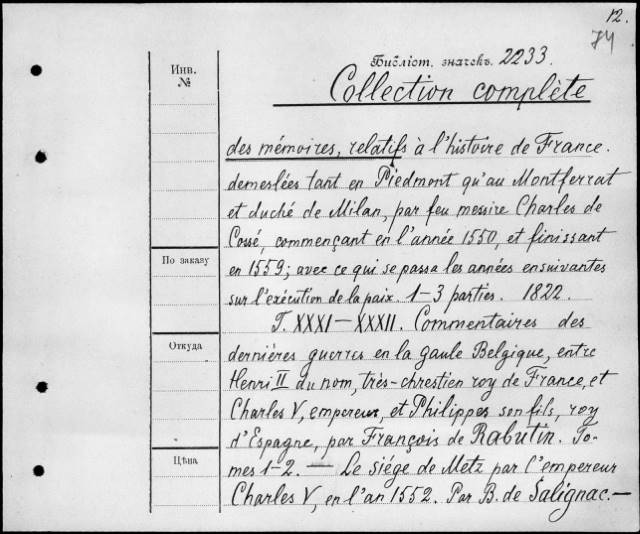 12.
74
Инв.
№
Библіот. значекъ. 2233.
Collection complète
des mémoires, relatifs à l'histoire de France.
demeslées tant en Piedmont qu'au Montferrat
et duché de Milan, par feu messire Charles de
Cossé, commençant en l'année 1550, et finissant
По заказу
en 1559; avec ce qui se passa les années ensuivantes
sur l'exécution de la paix. 1-3 parties. 1822.
T. XXXI-XXXII. Commentaires des
Откуда
dernières guerres en la gaule Belgique, entre
Henri II du nom, très-chrestien roy de France, et
Charles V, empereur, et Philippes son fils, roy
d'Espagne, par François de Rabutin. To-
Цѣна
mes 1-2. — Le siége de Metz par l'empereur
Charles V, en l'an 1552. Par B. de Salignac.—